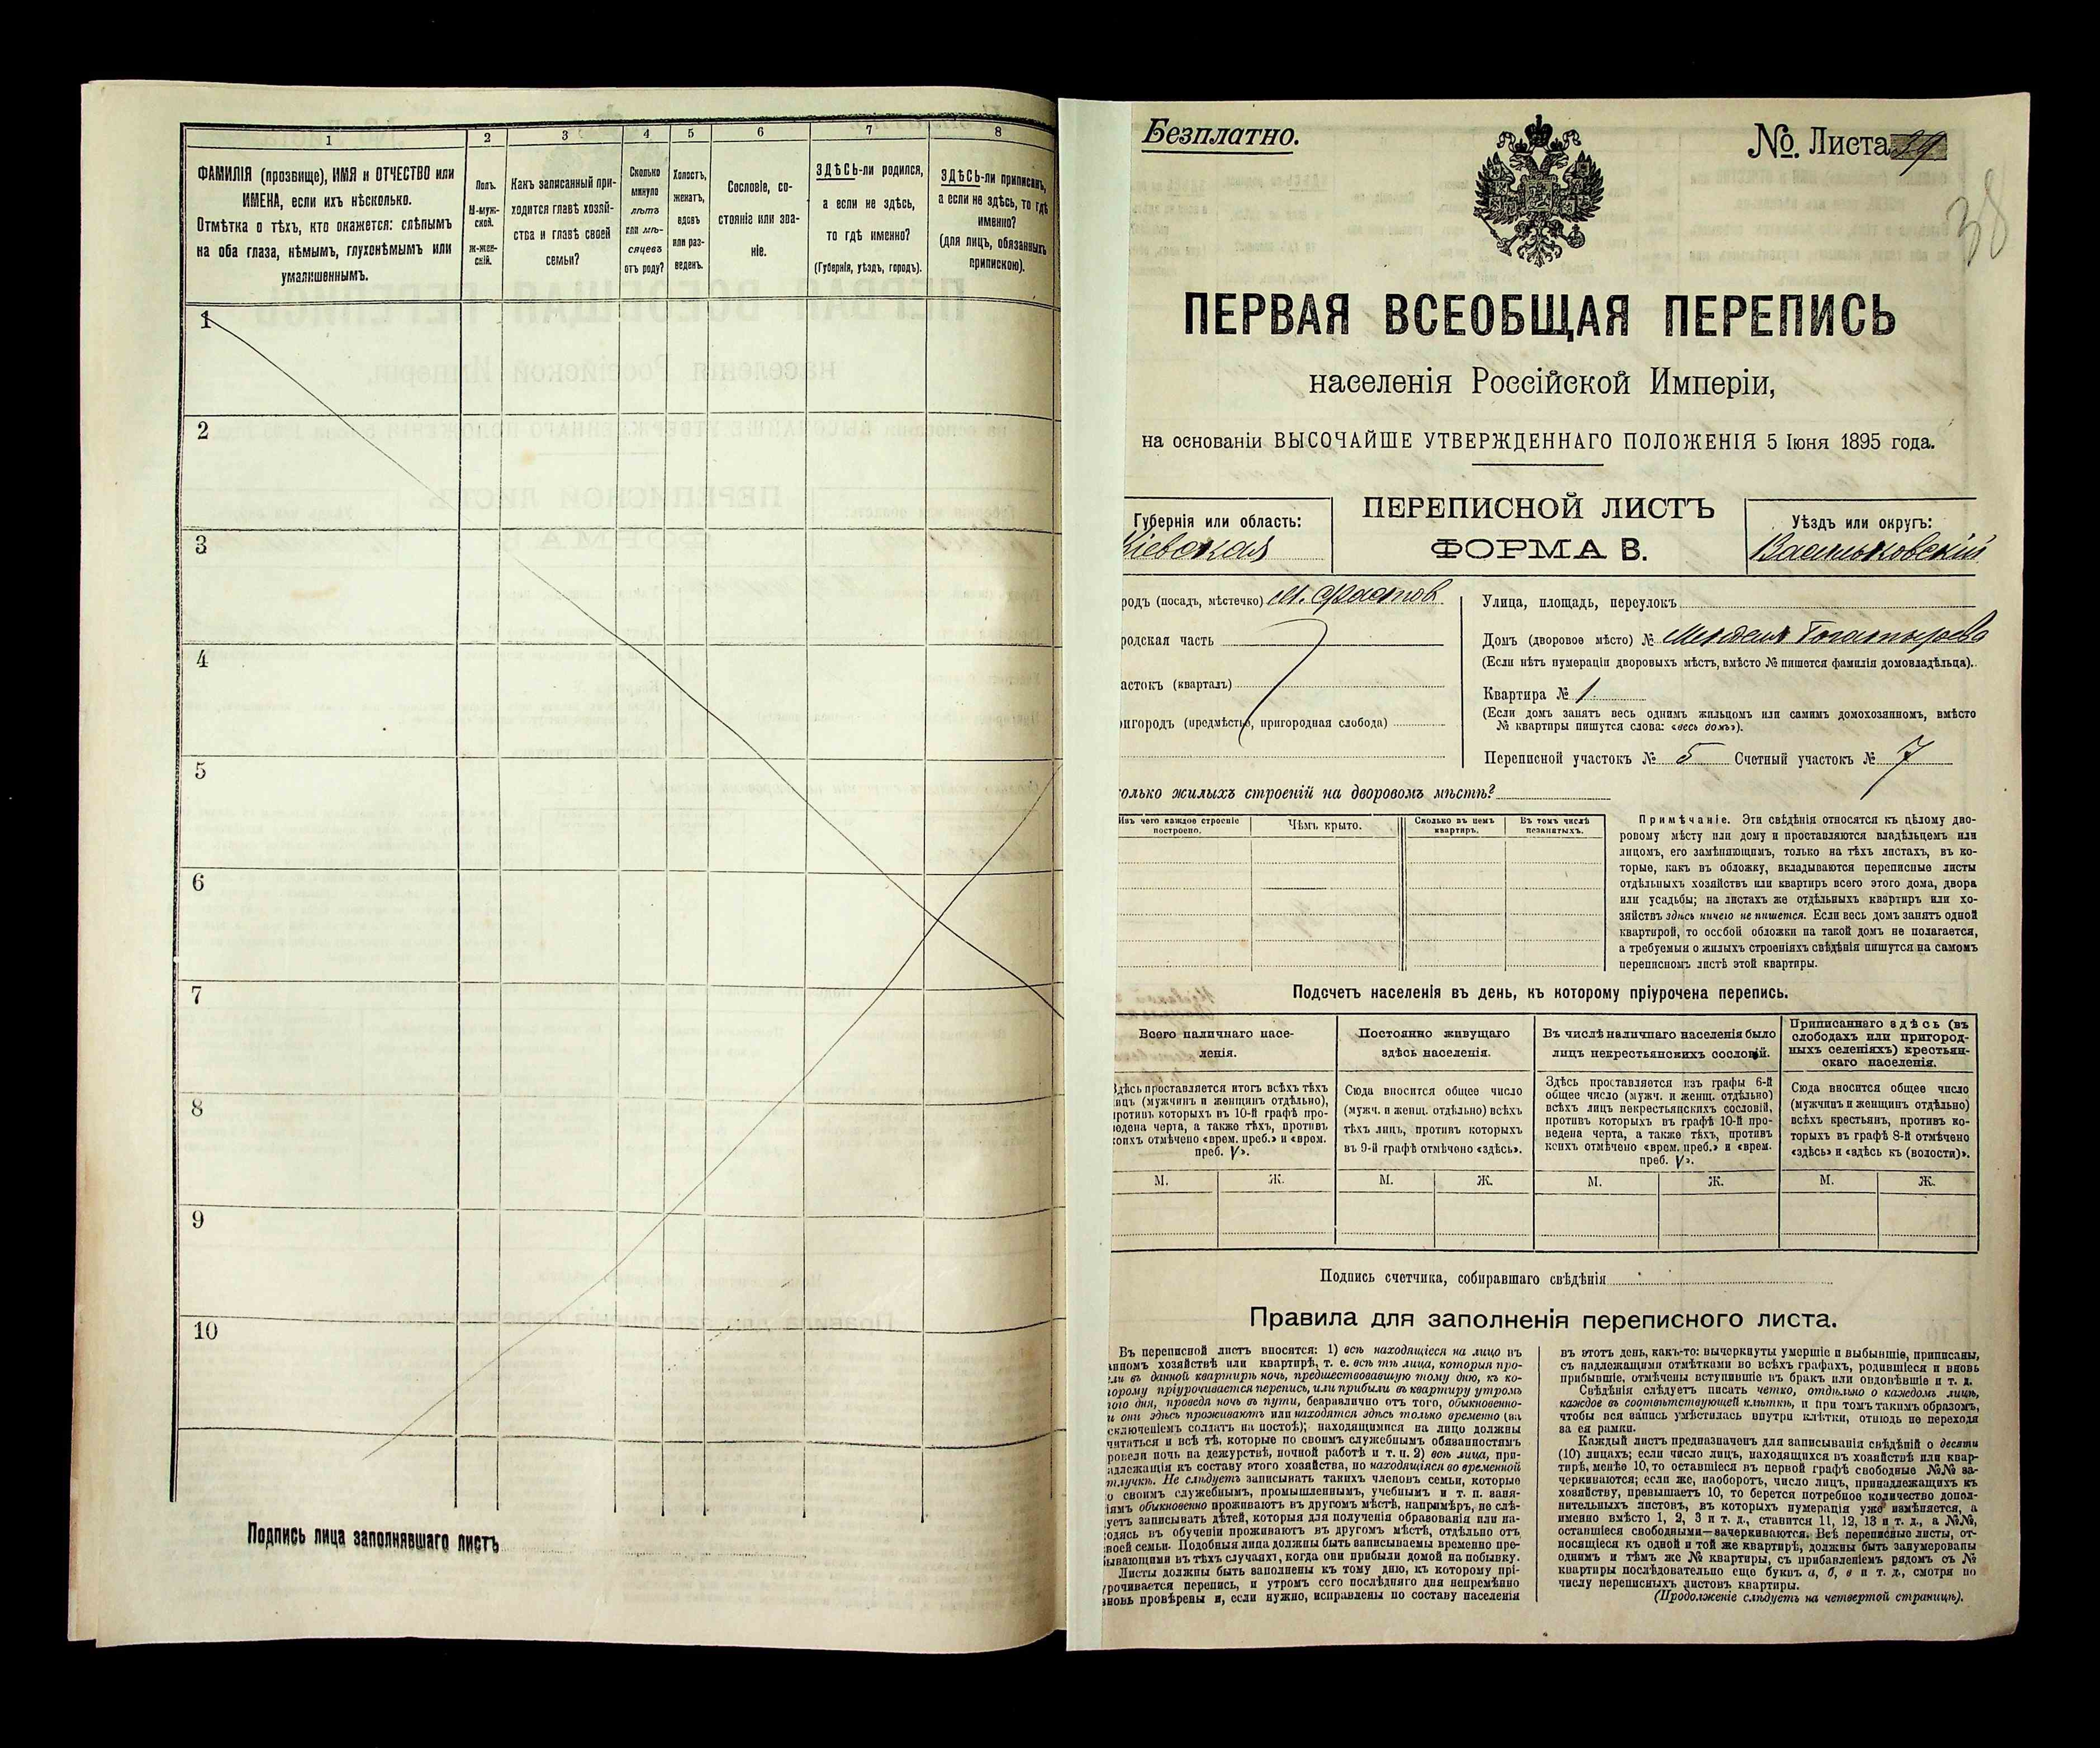 1
2
3
4
5
6
7
8
ФАМИЛІЯ (прозвище), ИМЯ и ОТЧЕСТВО или
ИМЕНА, если ихъ нѣсколько.
Отмѣтка о тѣхъ, кто окажется: слѣпымъ
на оба глаза, нѣмымъ, глухонѣмымъ или
умалишеннымъ.
Полъ.
М-муж-
ской.
Ж-жен-
скій.
Какъ записанный при-
ходится главѣ хозяй-
ства и главѣ своей
семьи?
Сколько
минуло
лѣтъ
или мѣ-
сяцевъ
отъ роду?
Холостъ,
женатъ,
вдовъ
или раз-
веденъ.
Сословіе, со-
стояніе или зва-
ніе.
ЗДѢСЬ-ли родился,
а если не здѣсь,
то гдѣ именно?
(Губернія, уѣздъ, городъ).
ЗДѢСЬ-ли приписанъ,
а если не здѣсь, то гдѣ
именно?
(для лицъ, обязанныхъ
припискою).
1
2
3
4
5
6
7
8
9
10
Подпись лица заполнявшаго листъ
Безплатно.
№ Листа 39
38
ПЕРВАЯ ВСЕОБЩАЯ ПЕРЕПИСЬ
населенія Россійской Имперіи,
на основаніи ВЫСОЧАЙШЕ УТВЕРЖДЕННАГО ПОЛОЖЕНІЯ 5 Іюня 1895 года.
Губернія или область:
Кіевская
ПЕРЕПИСНОЙ ЛИСТЪ
ФОРМА В.
Уѣздъ или округъ:
Васильковскій
родъ (посадъ, мѣстечко) М. Фастов
родская часть
астокъ (кварталъ)
игородъ (предмѣстье, пригородная слобода)
Улица, площадь, переулокъ
Домъ (дворовое мѣсто) №
(Если нѣтъ нумераціи дворовыхъ мѣстъ, вмѣсто № пишется фамилія домовладѣльца).
Квартира № 1.
(Если домъ занятъ весь однимъ жильцомъ или самимъ домохозяиномъ, вмѣсто
№ квартиры пишутся слова: «весь домъ»).
Переписной участокъ № 5 Счетный участокъ № 7
олько жилыхъ строеній на дворовомъ мѣстѣ?
Изъ чего каждое строеніе
построено.
Чѣмъ крыто.
Сколько въ немъ
квартиръ.
Въ томъ числѣ
незанятыхъ.
Примѣчаніе. Эти свѣдѣнія относятся къ цѣлому дво-
ровому мѣсту или дому и проставляются владѣльцемъ или
лицомъ, его замѣняющимъ, только на тѣхъ листахъ, въ ко-
торые, какъ въ обложку, вкладываются переписные листы
отдѣльныхъ хозяйствъ или квартиръ всего этого дома, двора
или усадьбы; на листахъ же отдѣльныхъ квартиръ или хо-
зяйствъ здѣсь ничего не пишется. Если весь домъ занятъ одной
квартирой, то особой обложки на такой домъ не полагается,
а требуемыя о жилыхъ строеніяхъ свѣдѣнія пишутся на самомъ
переписномъ листѣ этой квартиры.
Подсчетъ населенія въ день, къ которому пріурочена перепись.
Всего наличнаго насе-
ленія.
Здѣсь проставляется итогъ всѣхъ тѣхъ
лицъ (мужчинъ и женщинъ отдѣльно),
противъ которыхъ въ 10-й графѣ про-
ведена черта, а также тѣхъ, противъ
коихъ отмѣчено «врем. преб.» и «врем.
преб. V».
Постоянно живущаго
здѣсь населенія.
Сюда вносится общее число
(мужч. и женщ. отдѣльно) всѣхъ
тѣхъ лицъ, противъ которыхъ
въ 9-й графѣ отмѣчено «здѣсь».
Въ числѣ наличнаго населенія было
лицъ некрестьянскихъ сословій.
Здѣсь проставляется изъ графы 6-й
общее число (мужч. и женщ. отдѣльно)
всѣхъ лицъ некрестьянскихъ сословій,
противъ которыхъ въ графѣ 10-й про-
ведена черта, а также тѣхъ, противъ
коихъ отмѣчено «врем. преб.» и «врем.
преб. V».
Приписаннаго здѣсь (въ
слободахъ или пригород-
ныхъ селеніяхъ) крестьян-
скаго населенія.
Сюда вносится общее число
(мужчинъ и женщинъ отдѣльно)
всѣхъ крестьянъ, противъ ко-
торыхъ въ графѣ 8-й отмѣчено
«здѣсь» и «здѣсь къ (волости)».
М. Ж. М. Ж. М. Ж. М. Ж.
Подпись счетчика, собиравшаго свѣдѣнія
Правила для заполненія переписного листа.
Въ переписной листъ вносятся: 1) всѣ находящіеся на лицо въ
анномъ хозяйствѣ или квартирѣ, т. е. всѣ тѣ лица, которыя про-
ели въ данной квартирѣ ночь, предшествовавшую тому дню, къ ко-
торому пріурочивается перепись, или прибыли въ квартиру утромъ
того дня, проведя ночь въ пути, безразлично отъ того, обыкновенно-
и они здѣсь проживаютъ или находятся здѣсь только временно (за
сключеніемъ солдатъ на постоѣ); находящимися на лицо должны
читаться и всѣ тѣ, которые по своимъ служебнымъ обязанностямъ
ровели ночь на дежурствѣ, ночной работѣ и т. п. 2) всѣ лица, при-
адлежащія къ составу этого хозяйства, но находящіяся во временной
тлучкѣ. Не слѣдуетъ записывать такихъ членовъ семьи, которые
о своимъ служебнымъ, промышленнымъ, учебнымъ и т. п. заня-
іямъ обыкновенно проживаютъ въ другомъ мѣстѣ, напримѣръ, не слѣ-
уетъ записывать дѣтей, которыя для полученія образованія или на-
одясь въ обученіи проживаютъ въ другомъ мѣстѣ, отдѣльно отъ
воей семьи. Подобныя лица должны быть записываемы временно пре-
бывающими въ тѣхъ случаяхъ, когда они прибыли домой на побывку.
Листы должны быть заполнены къ тому дню, къ которому прі-
урочивается перепись, и утромъ сего послѣдняго дня непремѣнно
вновь провѣрены и, если нужно, исправлены по составу населенія
въ этотъ день, какъ-то: вычеркнуты умершіе и выбывшіе, приписаны,
съ надлежащими отмѣтками во всѣхъ графахъ, родившіеся и вновь
прибывшіе, отмѣчены вступившіе въ бракъ или овдовѣвшіе и т. д.
Свѣдѣнія слѣдуетъ писать четко, отдѣльно о каждомъ лицѣ,
каждое въ соотвѣтствующей клѣткѣ, и при томъ такимъ образомъ,
чтобы вся запись умѣстилась внутри клѣтки, отнюдь не переходя
за ея рамки.
Каждый листъ предназначенъ для записыванія свѣдѣній о десяти
(10) лицахъ; если число лицъ, находящихся въ хозяйствѣ или квар-
тирѣ, менѣе 10, то оставшіеся въ первой графѣ свободные №№ за-
черкиваются; если же, наоборотъ, число лицъ, принадлежащихъ къ
хозяйству, превышаетъ 10, то берется потребное количество допол-
нительныхъ листовъ, въ которыхъ нумерація уже измѣняется, а
именно вмѣсто 1, 2, 3 и т. д., ставится 11, 12, 13 и т. д., а №№,
оставшіеся свободными—зачеркиваются. Всѣ переписные листы, от-
носящіеся къ одной и той же квартирѣ, должны быть занумерованы
однимъ и тѣмъ же № квартиры, съ прибавленіемъ рядомъ съ №
квартиры послѣдовательно еще буквъ а, б, в и т. д., смотря по
числу переписныхъ листовъ квартиры.
(Продолженіе слѣдуетъ на четвертой страницѣ).